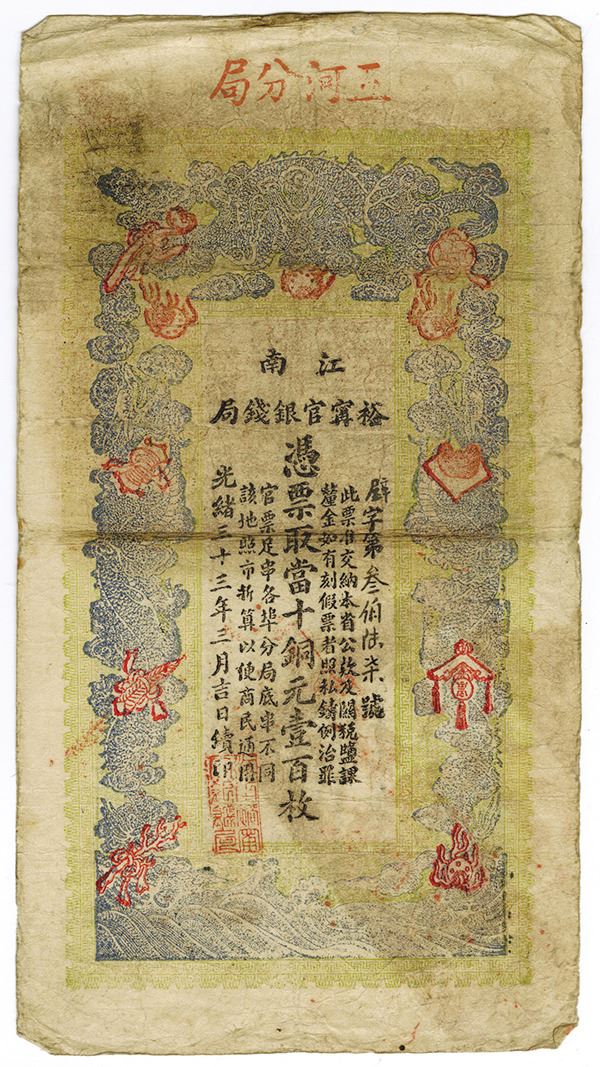 五河分局
江南
裕甯官銀錢局
字第叁佰陸柒號
此票准交納本省公款及關稅鹽課
釐金如有刻假票者照私鑄例治罪
憑票取當十銅元壹百枚
官票足串各埠分局底串不同
該地照市折算以便商民通用
光緒三十三年三月吉日續印